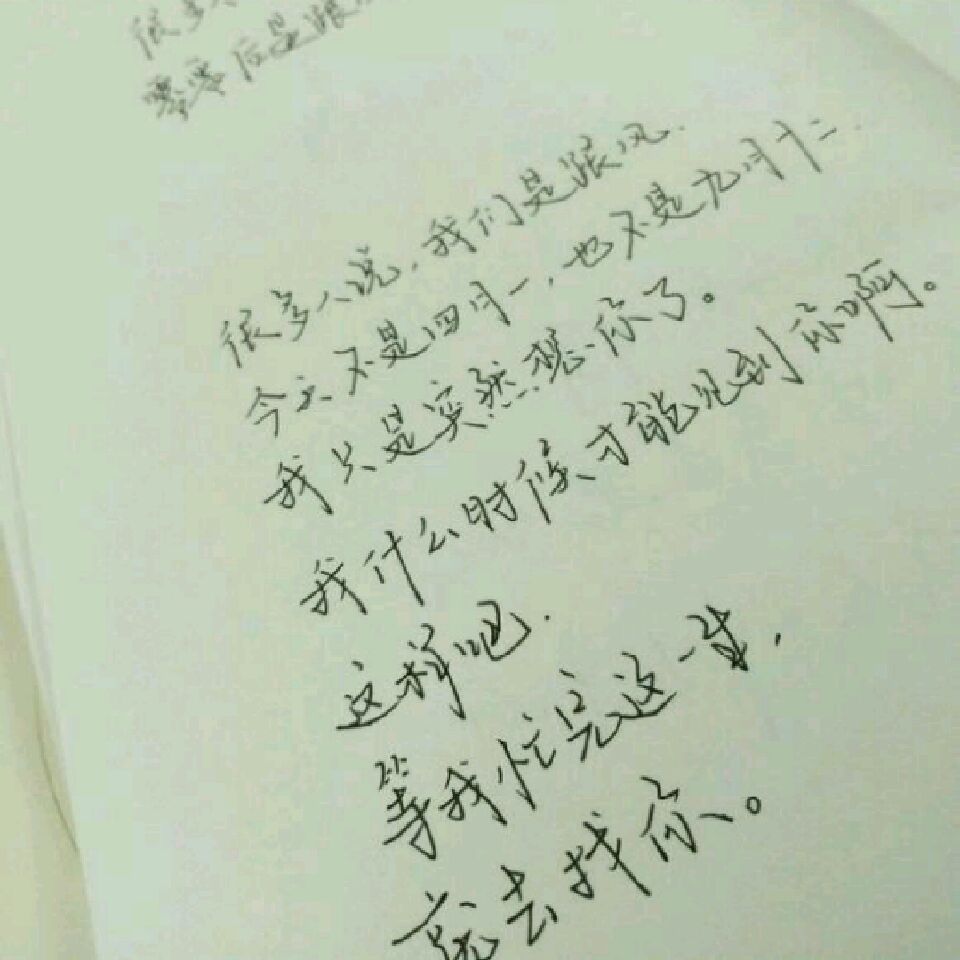 很多
零零后是跟
很多人说，我们是跟风.
今天不是四月一，也不是九月十二.
我只是突然想你了。
我什么时候才能见到你啊。
这样吧.
等我忙完这一生，
就去找你。